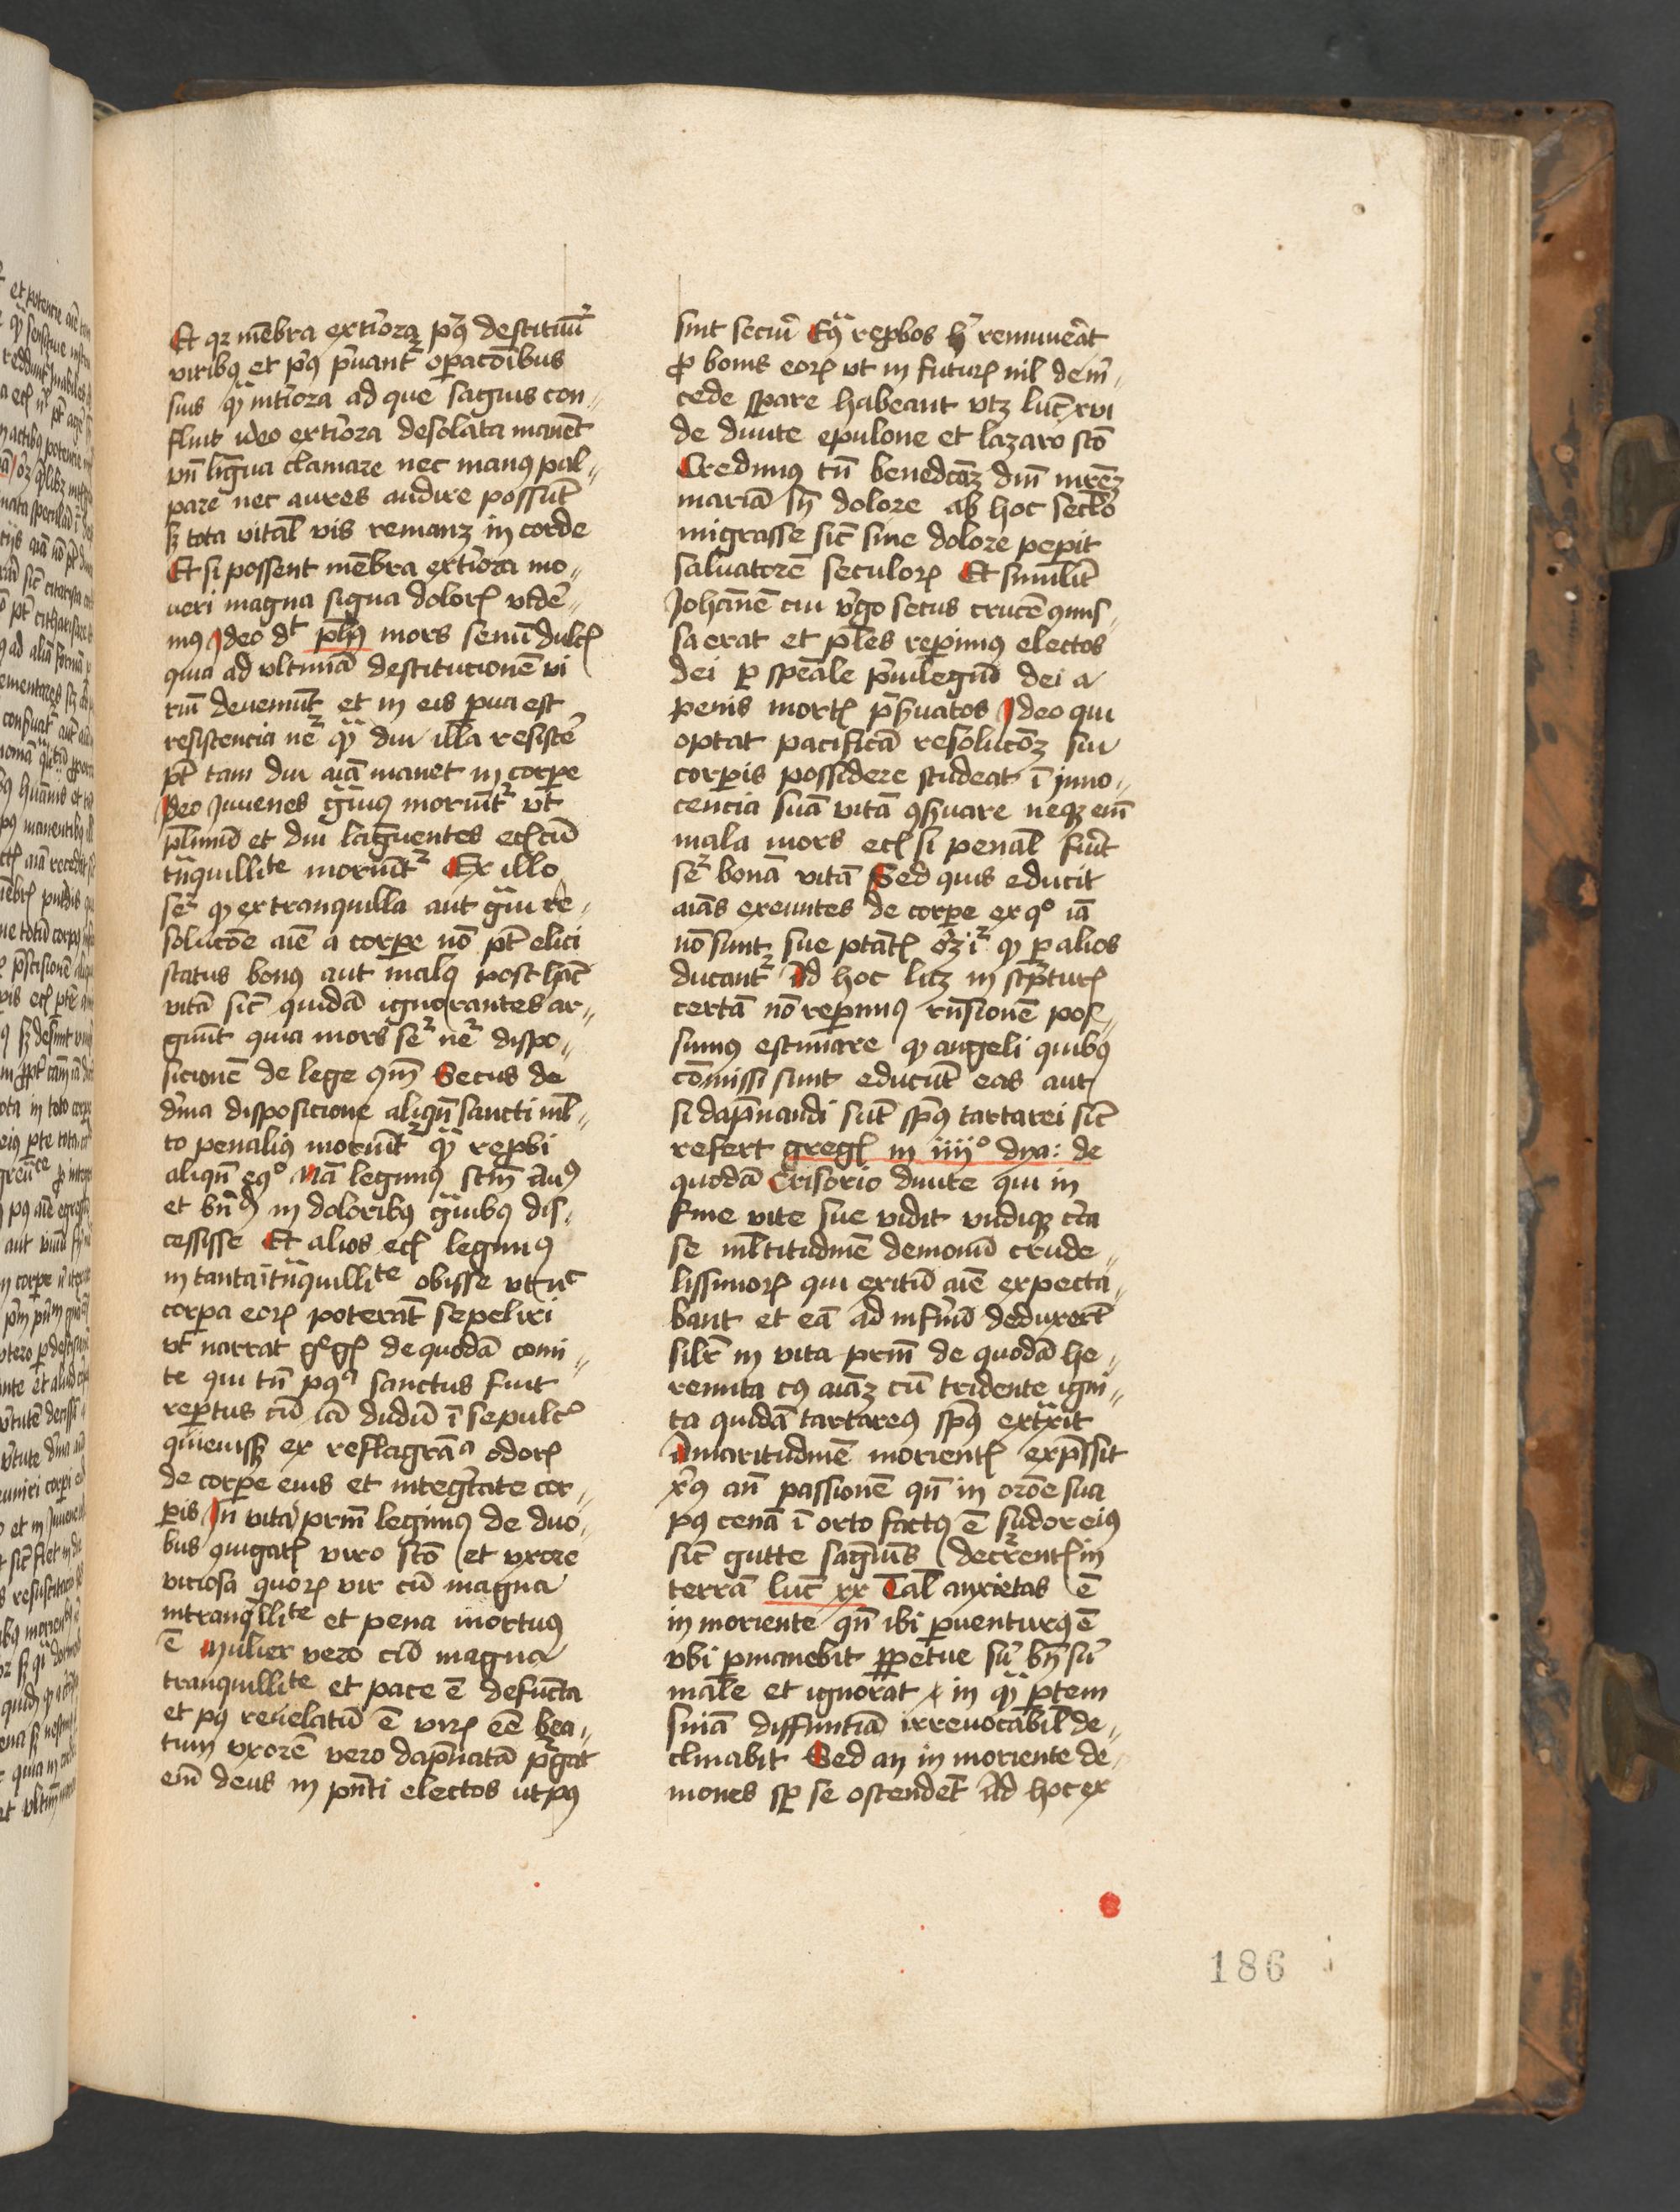 Et qz mēbra extiora pꝰ destituūt
viribꝰ et pꝰ pⁱuant opacōibus
suis qͣ intiora ad que sāguis con
fluit ideo extiora desolata manēt
vn̄ ligua clamare nec manꝰ pal
pare nec aures audire possūt
sz tota vital vis remanz in corde
Et si possent mēbra extiora mo
ueri magna signa dolorꝭ vidē
mꝰ Ideo dt phꝰ mors senū dulcꝭ
quia ad vltimā destitucionē vi
riū deueniūt et in eis pua est
resistencia nē qͣ diu illa resistē
pt̄ tam diu aīa manet in corpe
Ideo Iuuenes gͣuiꝰ moriūt vt
plimū et diu lāguentes ecꝭ cū
tnͣquillite moriūt Ex illo
sē ꝙ ex tranquilla aut gͣui re
solucōe aīe a corpe nō pt̄ elici
status bonꝰ aut malꝰ post hāc
vitā sic̄ quidā ignorantes ar
guūt quia mors sē nē dispo
sicionē de lege qm̄ Secus de
dīna disposicione aliqn̄ sancti ml
to penaliꝰ moriūt qͣ repbi
aliqn̄ eqͦ Nā legimꝰ stm̄
et in doloribꝰ gͣuibꝰ dis
cessisse Et alios ecꝭ legimꝰ
in tanta intnͣquillite obisse vt nͨ
corpa eorꝭ poterāt sepeliri
vt narrat gͤgꝭ de quodā comi
te qui tn̄ pqͣ sanctus fuit
reptus cū iā dudū ī sepulcͦ
quieuissz ex reflagrāᵃ odorꝭ
de corpe eius et integrtate cor
pis In vita prm̄ legimꝰ de duo
bus ꝯiugatꝭ viro scō et vxore
viciosa quorꝭ vir cū magna
intranqllite et pena mortuꝰ
ē Mulier vero cū magna
tranquillite et pace ē defūcta
et pꝰ reuelatū ē virꝭ eē bea
tum vxorē vero dāpnatā pͬgat
em̄ deus in pn̄ti electos ut pꝰ
sint secūr Eqͣ repbos hͥ remunēat
ꝓ bonis eorꝭ vt in futurꝭ nil de m̄
cede spare habeant vtz luc̄ xvi
de diuite epulone et lazaro scō
Credimꝰ tn̄ benedcāz dn̄i mrēz
mariā sn̄ dolore ab hoc seclo
migrasse sic̄ sine dolore pepit
saluatorē seculorꝭ Et similit̄
Iohānē cui vͥgo secus crucē ꝯmis
sa erat et ples repimꝰ electos
dei ꝑ spēale pⁱuilegiū dei a
penis mortꝭ pͤseruatos Ideo qui
optat pacificā resolucōz sui
corpis possidere studeat ī inno
cencia suā vitā ꝯseruare neqz em̄
mala mors ecꝭ si penal fuēt
sē bonā vitā Sed quis educit
aīas exeuntes de corpe ex qͦ iā
nō sunt sue ptātꝭ ꝙ ꝑ alios
ducant Ad hoc licz in scripturꝭ
certā nō repimꝰ rn̄sionē pos
sumꝰ estimare ꝙ angeli quibꝰ
cōmissi sunt educūt eas aut
si dāpnandi sūt spꝰ tartarei sic̄
refert gregꝭ in iiiiͦ dya: de
quodā Crisorio diuite qui in
fine vite sue vidit vndiqz cͥca
se mltitudinē demonū crude
lissimorꝭ qui exitū aīe expecta
bant et eā ad infⁿū deduxert̄
silr̄ in vita prm̄ de quodā he
remita cꝰ aīaz cū tridente igni
ta quidā tartareꝰ spꝰ extxͣit
Amaritudinē morientꝭ expͤssit
xp̄s an̄ passionē qn̄ in orōe sua
pꝰ cenā ī orto factꝰ ē sudor eiꝰ
sic̄ gutte sāguīs decurrentꝭ in
terrā luc̄ xx Tal anxietas ē
in moriente qn̄ ibi puenturꝰ ē
vbi pmanebit ppetue siͧ bn̄ siͧ
male et ignorat in qͣ ptem
suīa diffinitīa irreuocabil de
clinabit Sed an in moriente de
mones sp̄ se ostendēt Ad hoc ex
186